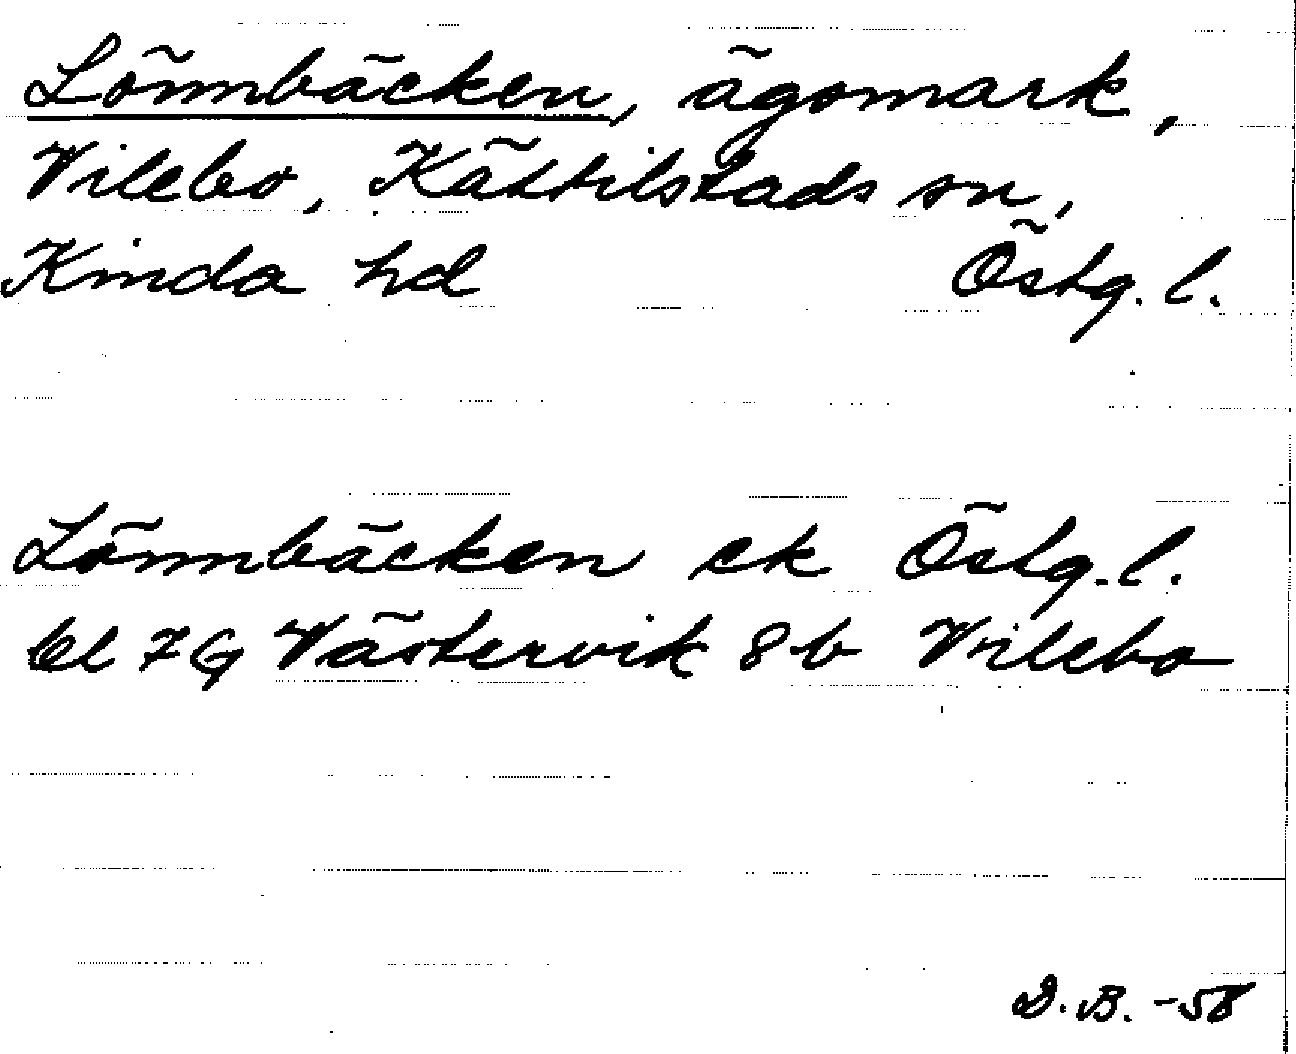 Lönnbäcken, ägomark,
Vilebo, Kättilstads sn,
Kinda hd Östg. l.
Lönnbäcken ek Östg. l.
bl 7G Västervik 8b Vilebo
D.B. -58